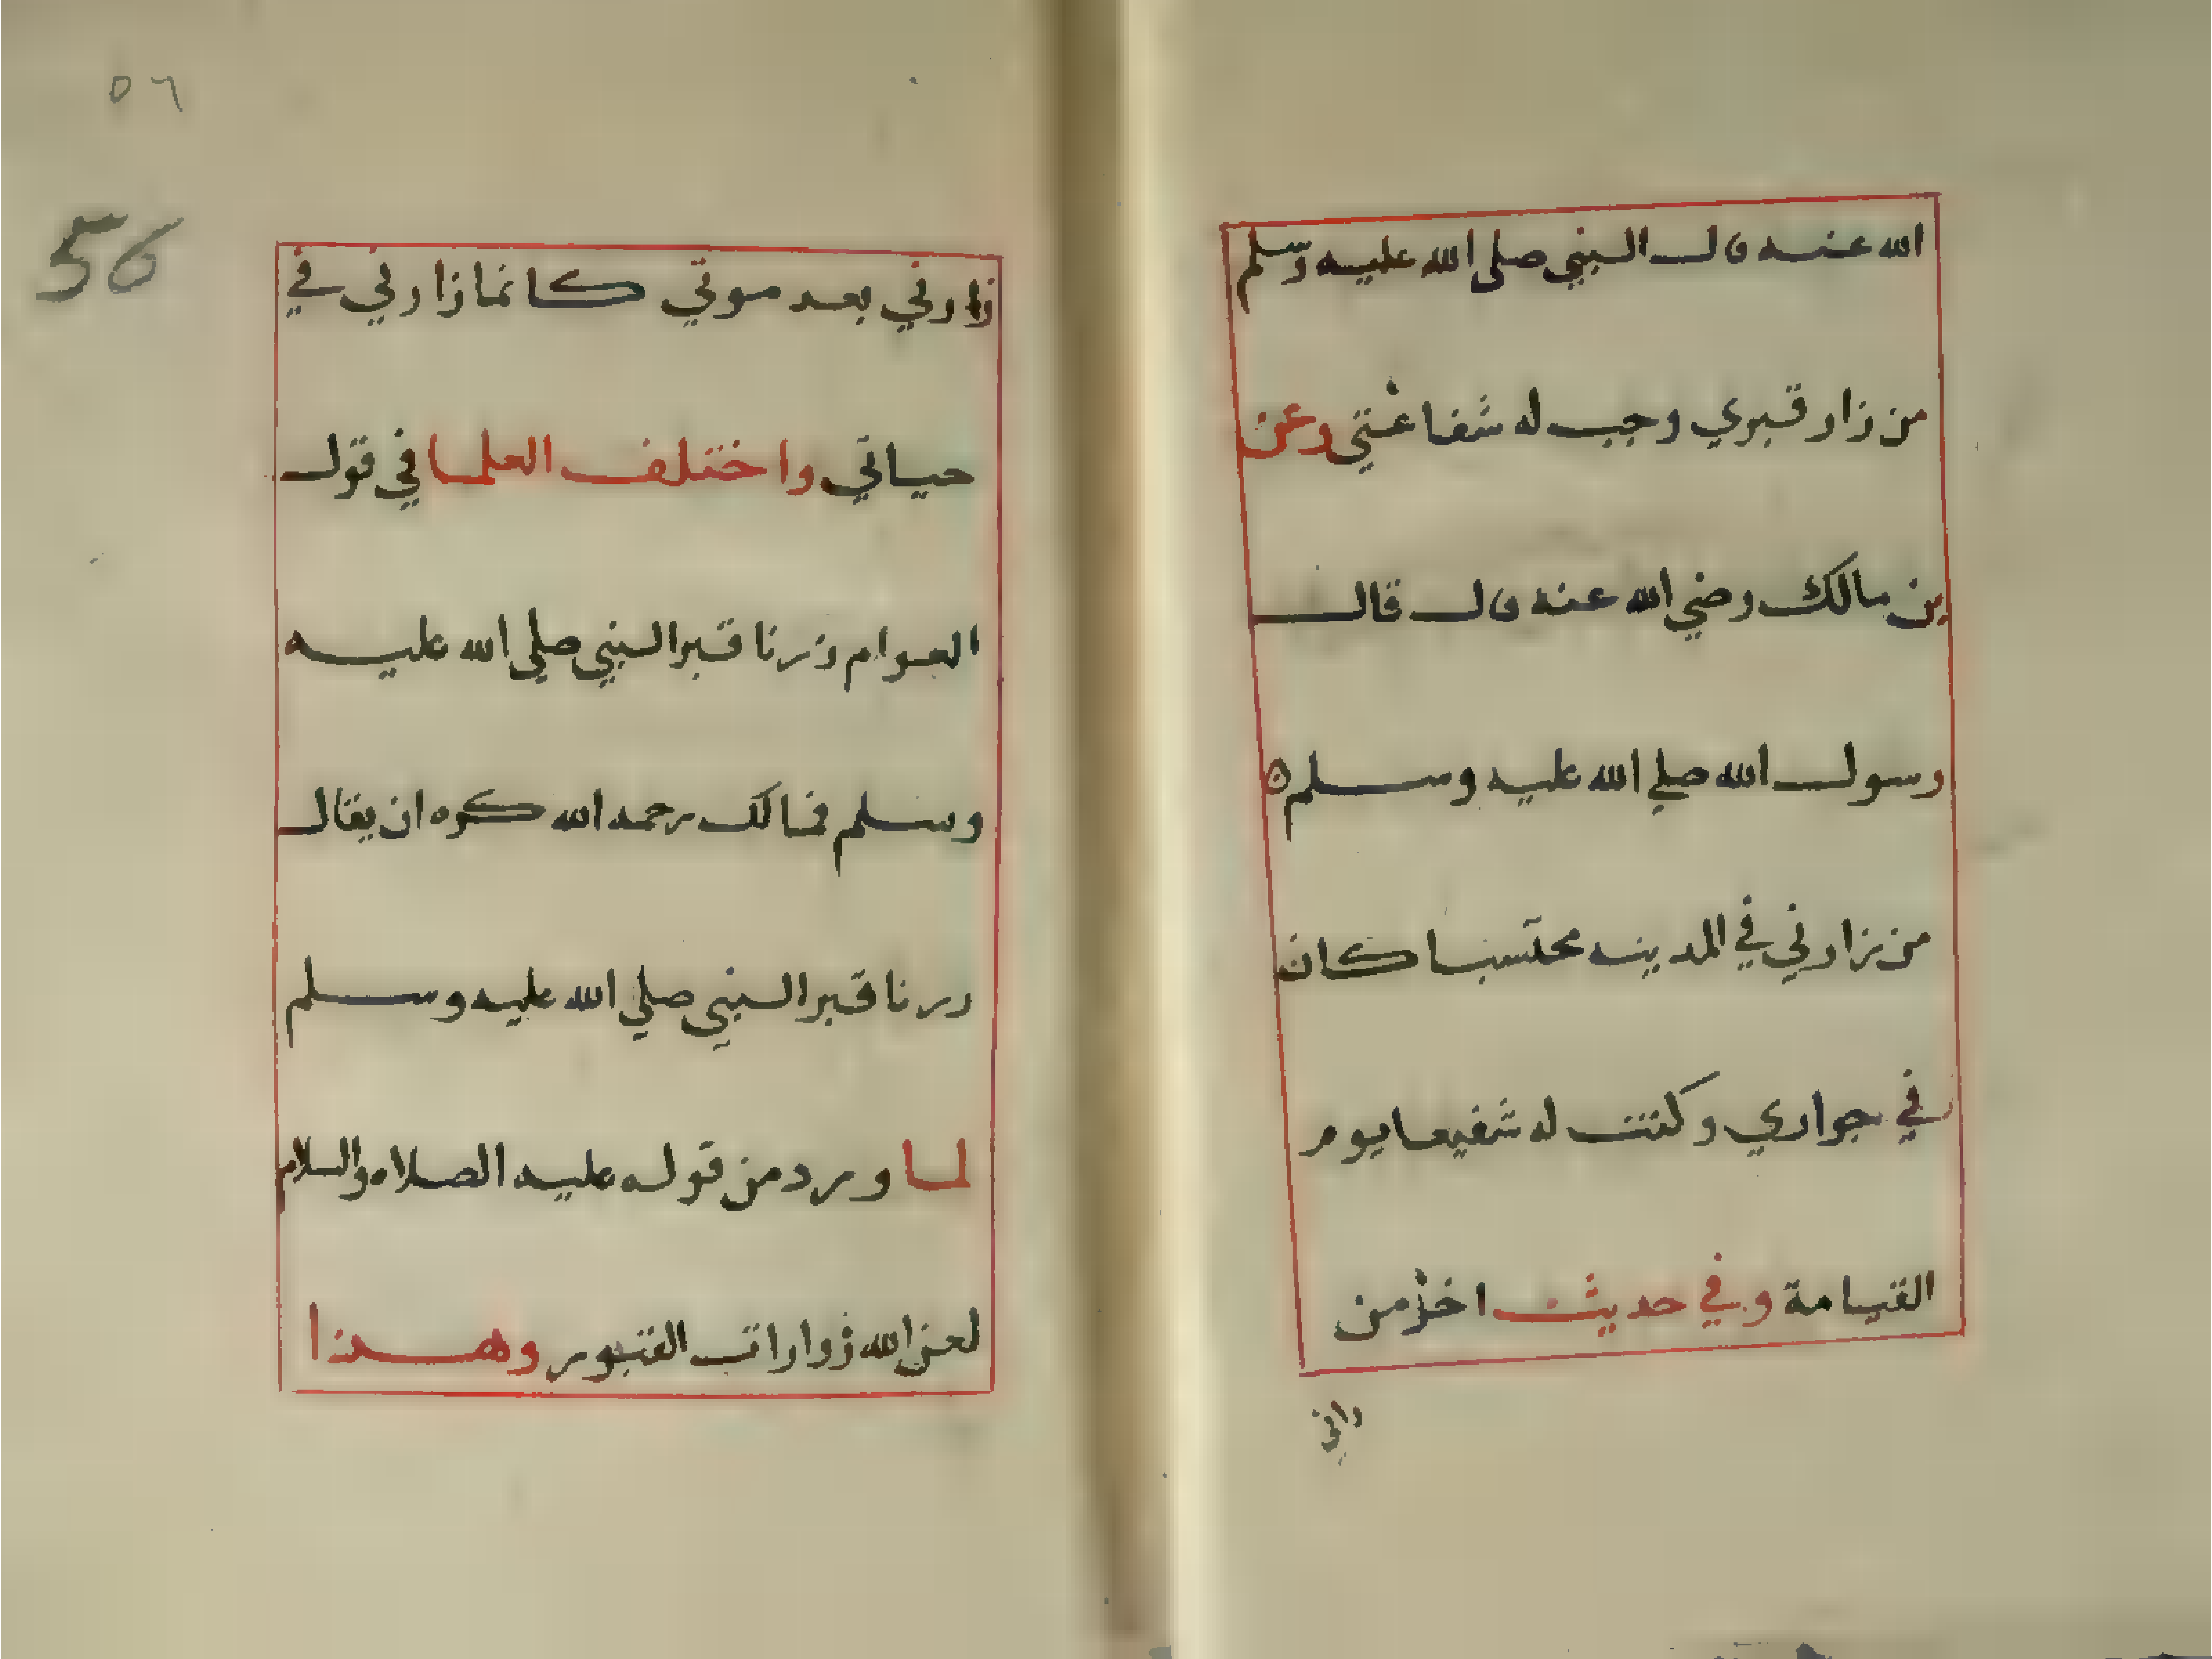 الله عنه قال النبي صلى الله عليه وسلم
من زار قبري وجب له شفاعتي وعن
بن مالك رضي الله عنه قال قال
رسول الله صلي الله عليه وسلم ه
من زارني في المدينه محتسبا كان
في جواري وكنت له شفيعا يوم
القيامة وفي حديث اخر من
٥٦
56
زارني بعد موتي كانما زارني في
حياتي واختلف العلما في قول
العوام زرنا قبر النبي صلي الله عليه
وسلم فمالك رحمه الله كره ان يقال
زرنا قبر النبي صلي الله عليه وسلم
لما ورد من قوله عليه الصلاه والسلام
لعن الله زوارات القبور وهذا